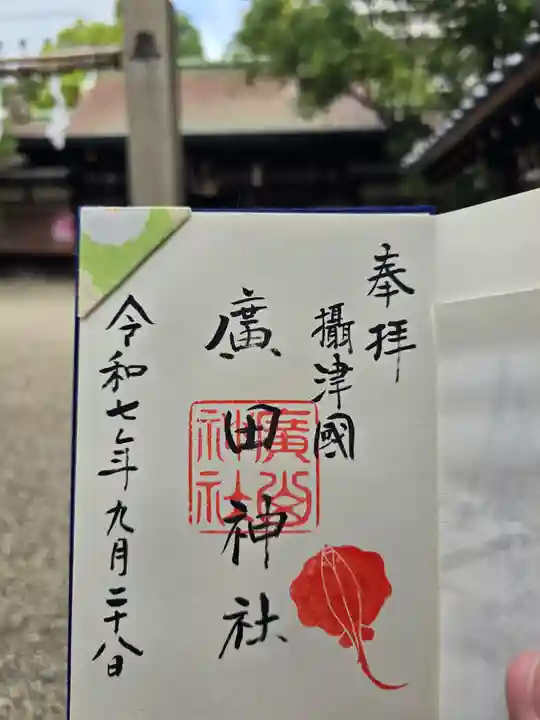 奉拝
攝津國
廣田神社
廣田
神社
令和七年九月二十八日